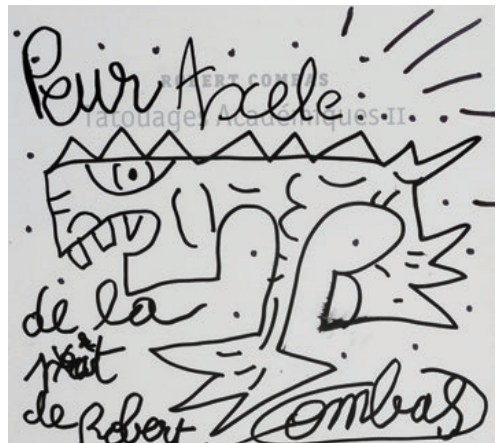 Pour Axele
ROBERT COMBAS
Tatouages Académiques II
de la
part
de Robert Combas